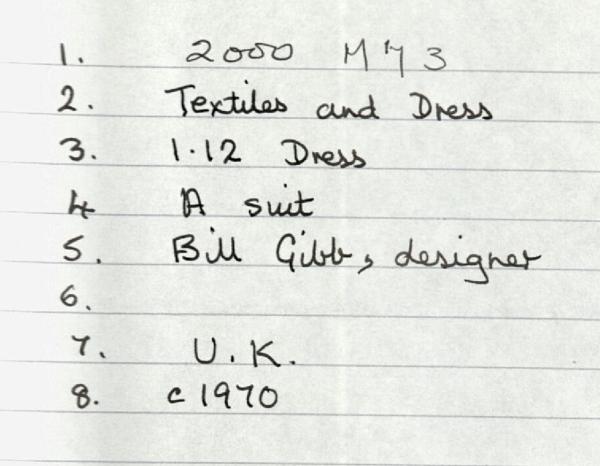 1. 2000 M43
2. Textiles and Dress
3. 1.12 Dress
4 A suit
5. Bill Gibb, designer
6.
7. U.K.
8. c 1970